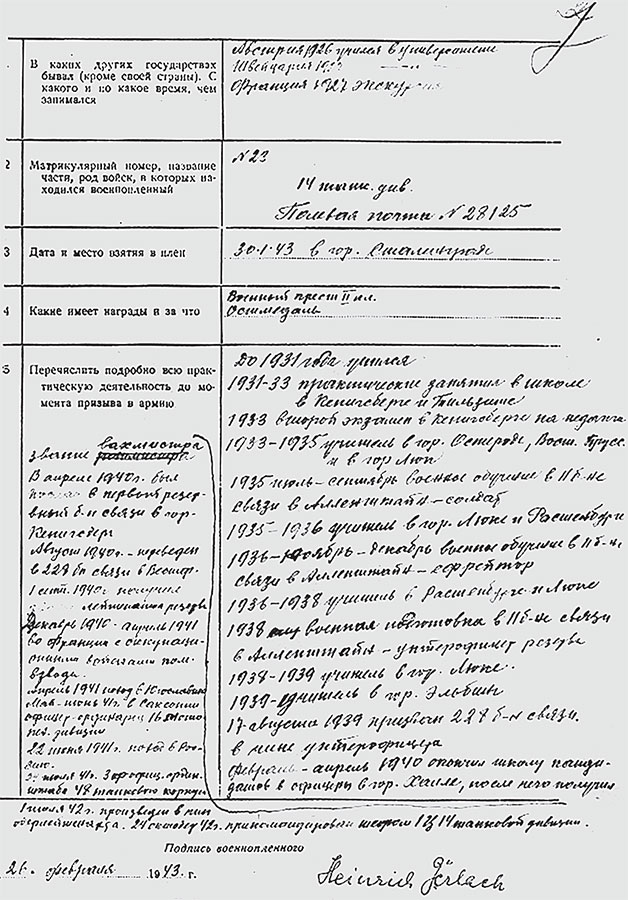 В каких других государствах
бывал (кроме своей страны). С
какого и по какое время, чем
занимался
Австрия 1926 учился в университете
Швейцария
Франция 1927 экскурсия
2
Матрикулярный номер, название
части, род войск, в которых на-
ходился военнопленный
N 23
14 танк. див.
Полевая почта N 28125
3
Дата и место взятия в плен
30.1.43 в гор. Сталинграде
4
Какие имеет награды и за что
Военный крест II кл.
Остмедаль
5
Перечислить подробно всю прак-
тическую деятельность до мо-
мента призыва в армию
До 1931 года учился
1931-33 практические занятия в школе
в Кенигсберге и Тильзите
1933 второй экзамен в Кенигсберге на педагога
1933-1935 учителем в гор. Остероде, Вост. Прусс.
и в гор Люк
1935 июль-сентябрь военное обучение в 11 б-не
связи в Алленштайн-солдат
1935-1936 учителем в гор. Люке и Растенбурге
1936-ноябрь-декабрь военное обучение в 11 б-не
связи в Алленштайн-ефрейтор
1936-1938 учитель в Растенбурге и Люке
1938 военная подготовка в 11 б-не связи
в Алленштайн-унтерофицер резерва
1938-1939 учитель в гор. Люке.
1939-учитель в гор. Эльбинг
17 августа 1939 призван 228 б-н связи.
в чине унтерофицера
Февраль-апрель 1940 окончил школу канди-
датов в офицеры в гор. Халле, после чего получил
звание вахмистра
В апреле 1940г. был
в первый резер-
вный б-н связи в гор.
Кенигсберг
Август 1940г.-переведен
в 228 бн связи в Вестф.
1 сент. 1940г получил
лейтенанта резерва
Декабрь 1940-апрель 1941
во Франции с оккупаци-
онными войсками пом.
взвода.
Апрель 1941 поход в Югославию
Май-июнь 41г. в Саксонии
офицер-ординарец 16 мото
пех. дивизии
22 июня 1941г. поход в Рос-
сию.
июля 41г. 3 офиц. ордин.
штаба 48 танкового корпуса
1 июля 42г. произведен в чин
оберлейтенанта. 24 октября 42г. прикомандирован 14 танковой дивизии.
Подпись военнопленного
26. февраля 1943. г.
Heinrich Gerlach